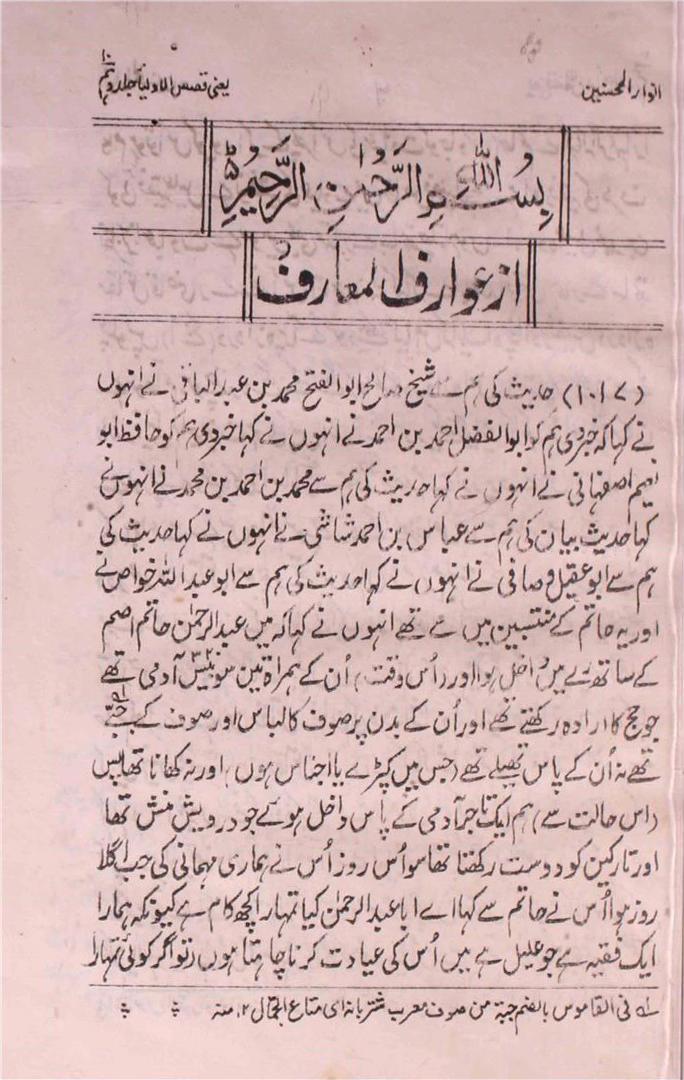 انوار المحسنین
یعنی قصص الاولیا جلد دہم ۱۰
بِسْمِ اللّٰهِ الرَّحْمٰنِ الرَّحِیْمِ
از عوارف المعارف
(۱۰۱۷) حدیث کی ہم سے شیخ صالح ابوالفتح محمد بن عبدالباقی نے انہوں
نے کہا کہ خبر دی ہم کو ابوالفضل احمد بن احمد نے انہوں نے کہا خبر دی ہم کو حافظ ابو
نعیم اصفہانی نے انہوں نے کہا حدیث کی ہم سے محمد بن احمد بن محمد نے انہوں نے
کہا حدیث بیان کی ہم سے عباس بن احمد شاشی نے انہوں نے کہا حدیث کی
ہم سے ابو عقیل وصافی نے انہوں نے کہا حدیث کی ہم سے ابو عبداللہ خواص نے
اور یہ حاتم کے منتسبین میں سے تھے انہوں نے کہا کہ میں عبدالرحمٰن حاتم اصم
کے ساتھ رے میں داخل ہوا اور (اس وقت) اُن کے ہمراہ تین سو بیس ۳۲۰ آدمی تھے
جو حج کا ارادہ رکھتے تھے اور اُن کے بدن پر صوف کا لباس اور صوف کے جبّے
تھے نہ اُن کے پاس تھیلے تھے (جس میں کپڑے یا اجناس ہوں) اور نہ کھانا تھا پس
(اس حالت سے) ہم ایک تاجر آدمی کے پاس داخل ہوئے جو درویش منش تھا
اور تارکین کو دوست رکھتا تھا سو اُس روز اُس نے ہماری مہمانی کی جب اگلا
روز ہوا اُس نے حاتم سے کہا اے ابا عبدالرحمٰن کیا تمہارا کچھ کام ہے کیونکہ ہمارا
ایک فقیہ ہے جو علیل ہے میں اُس کی عیادت کرنا چاہتا ہوں (تو اگر کوئی تمہارا
لہ فی القاموس بالضم جبۃ من صوف معرب شتربانہ ای متاع الجمال ۱۲ منہ